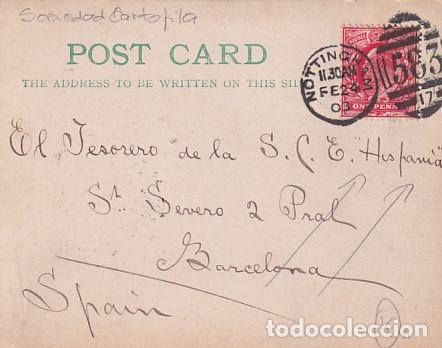 Sociedad Cartofila
POST CARD
THE ADDRESS TO BE WRITTEN ON THIS SI
NOTTINGH
11.30AM
FE 24
0
583
ONE PENNY
El Tesorero de la S. C. E. "Hispania"
St. Severo 2 Pral
Barcelona
Spain
todocoleccion